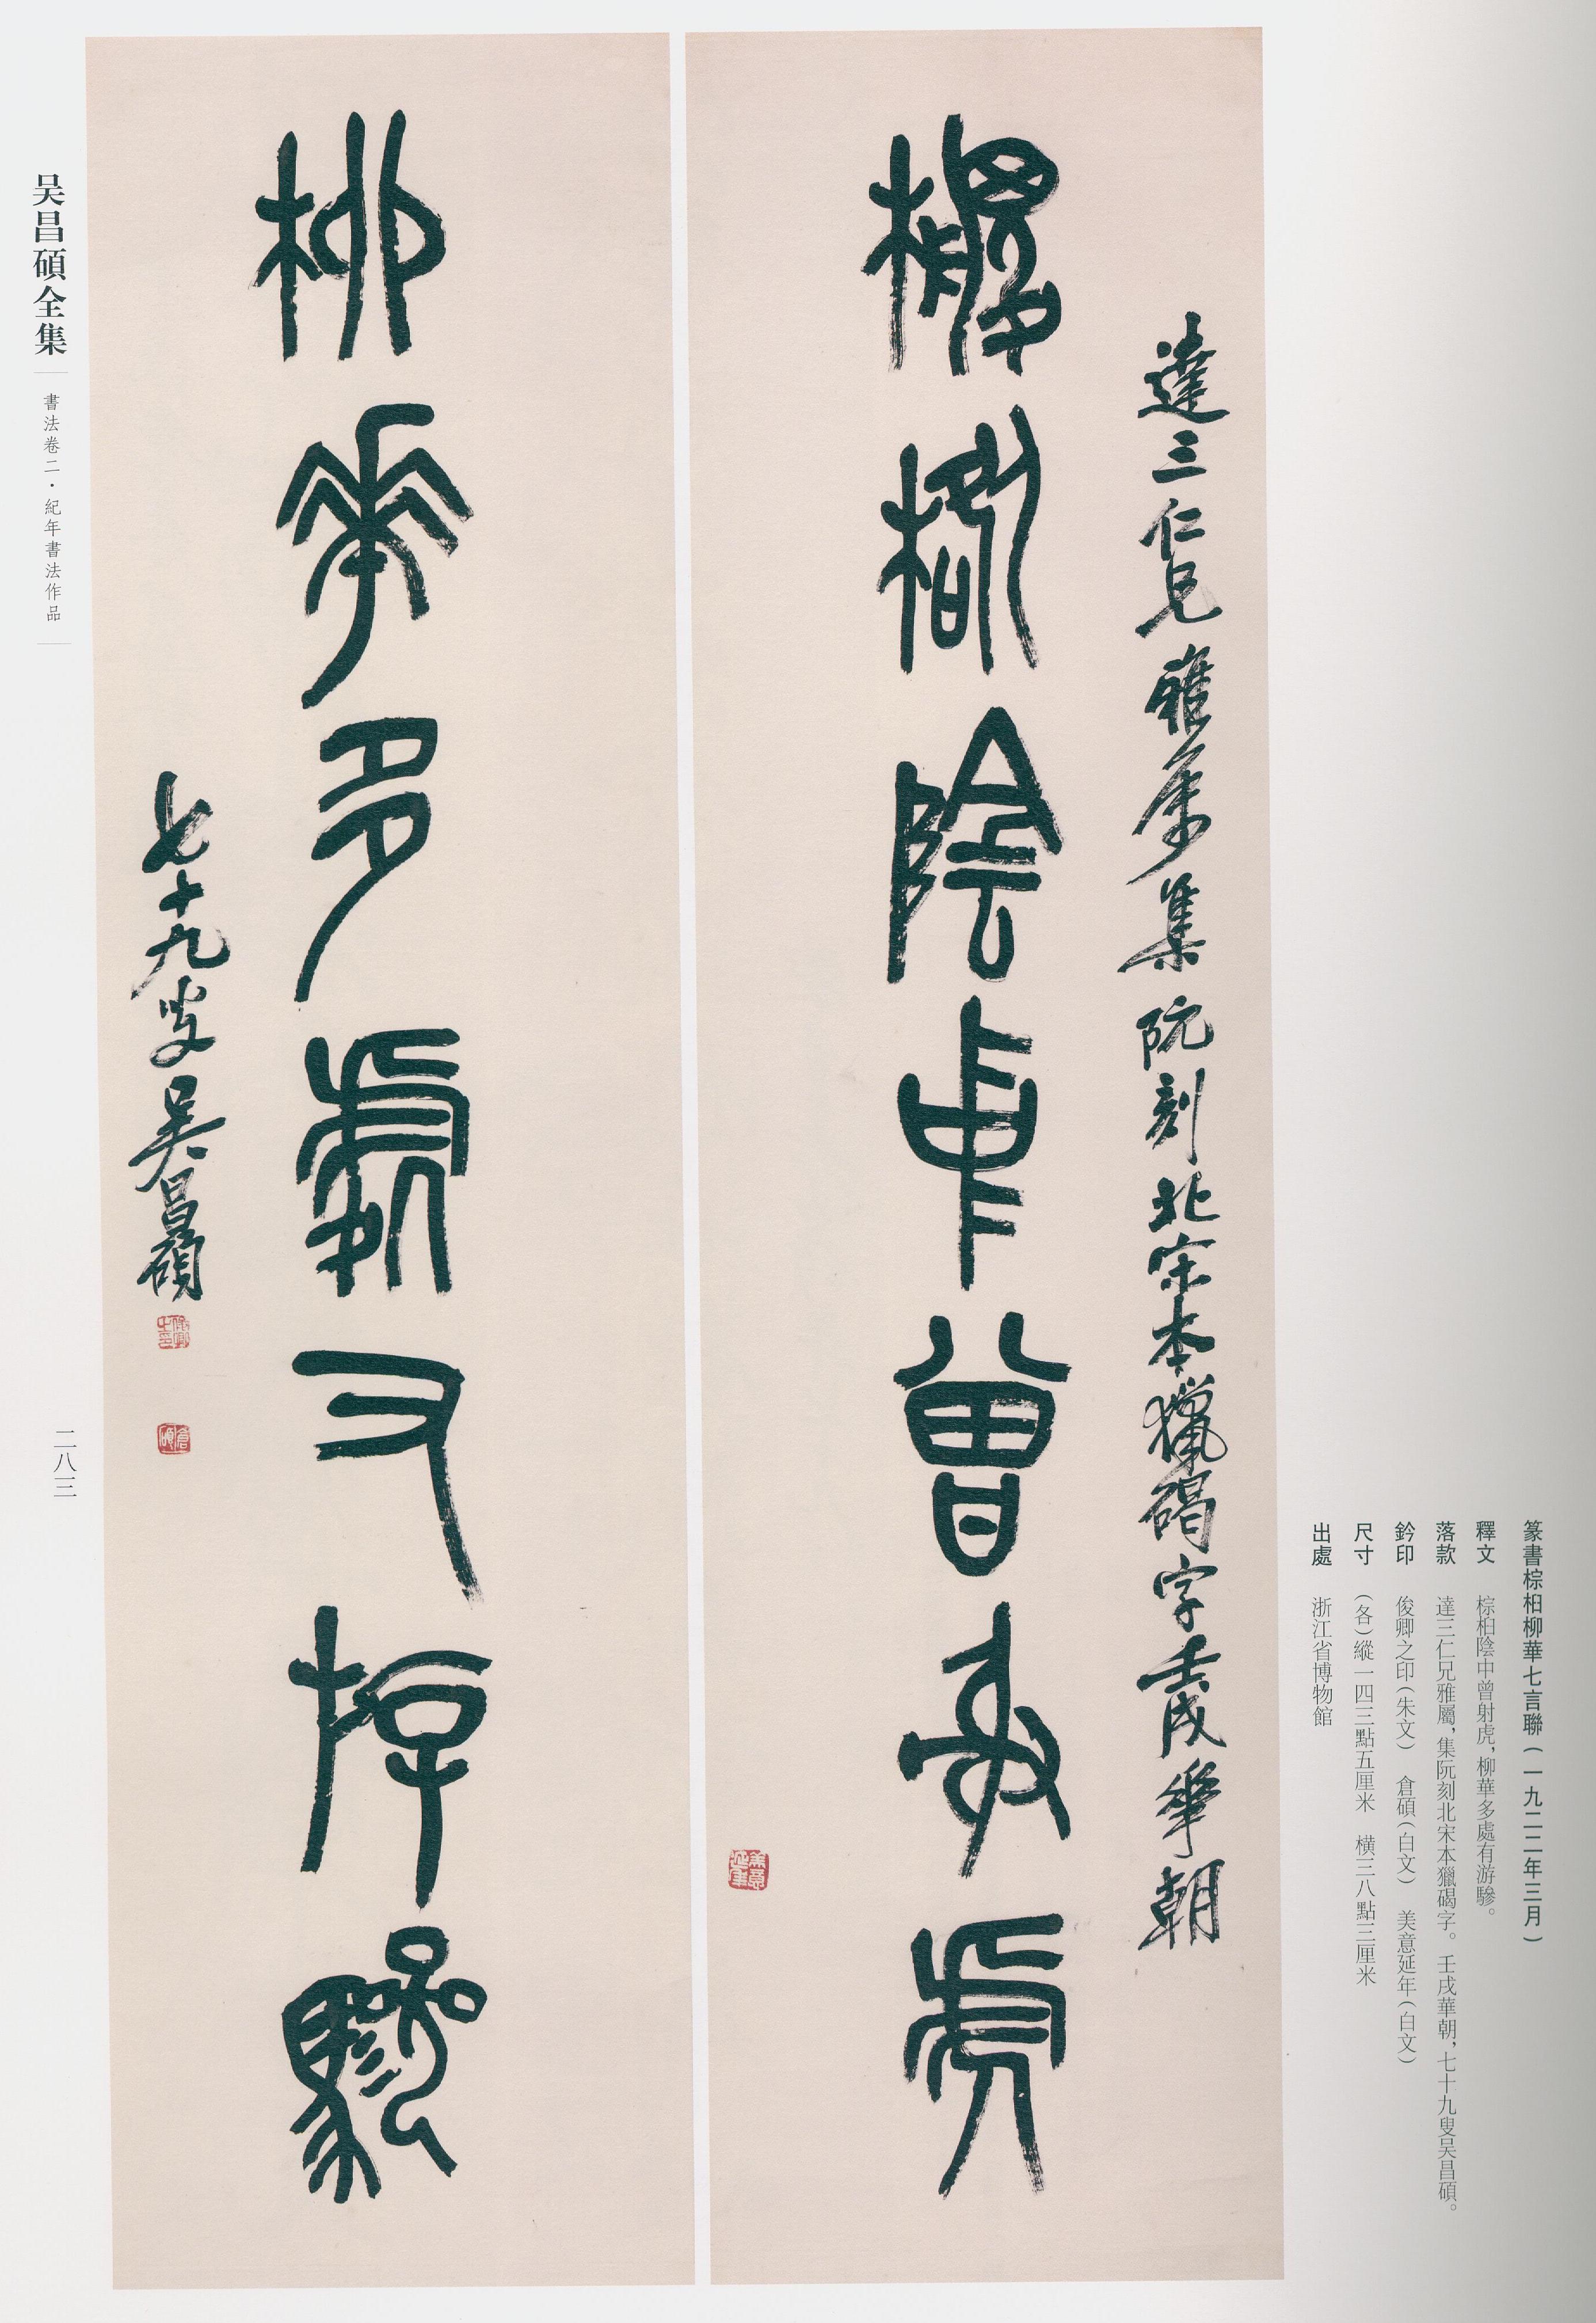 達三仁兄雅屬集阮刻北宋本獵碣字壬戌華朝
棕桕陰中曾射虎
柳華多處有游驂
七十九叟吴昌碩
俊卿之印
倉碩
美意延年
篆書棕桕柳華七言聯（一九二二年三月）
釋文　棕桕陰中曾射虎，柳華多處有游驂。
落款　達三仁兄雅屬，集阮刻北宋本獵碣字。壬戌華朝，七十九叟吴昌碩。
鈐印　俊卿之印（朱文）　倉碩（白文）　美意延年（白文）
尺寸　（各）縱一四三點五厘米　橫三八點三厘米
出處　浙江省博物館
吴昌碩全集
書法卷二·紀年書法作品
二八三